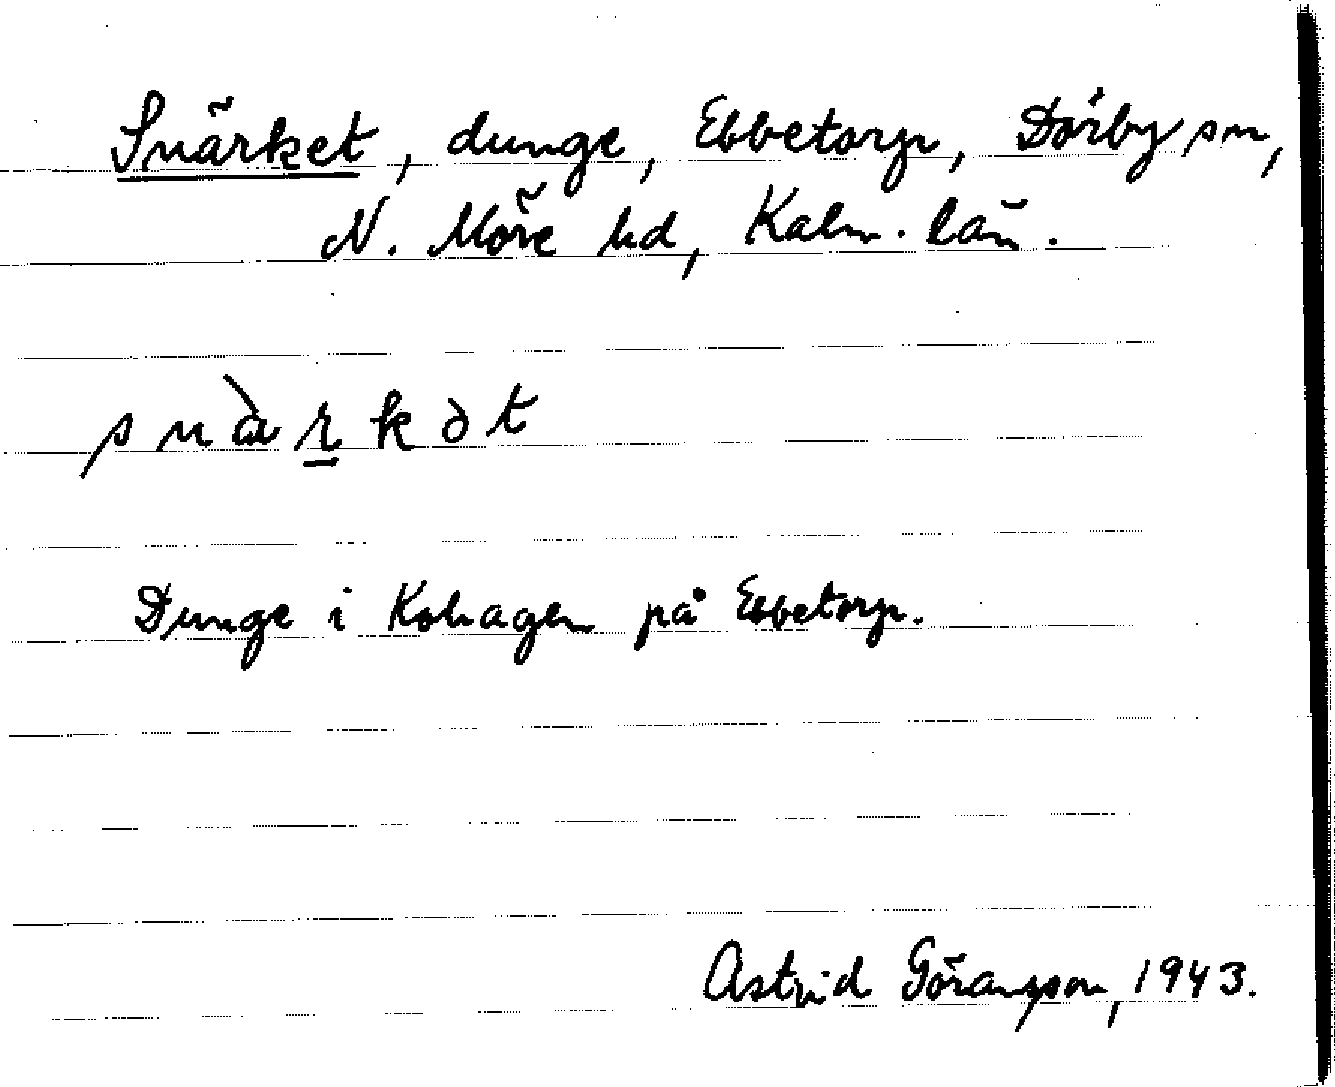 Snärket, dunge, Ebbetorp, Dörby sn,
N. Möre hd, Kalm. län.
snὰrkət
Dunge i Kohagen på Ebbetorp.
Astrid Göransson, 1943.